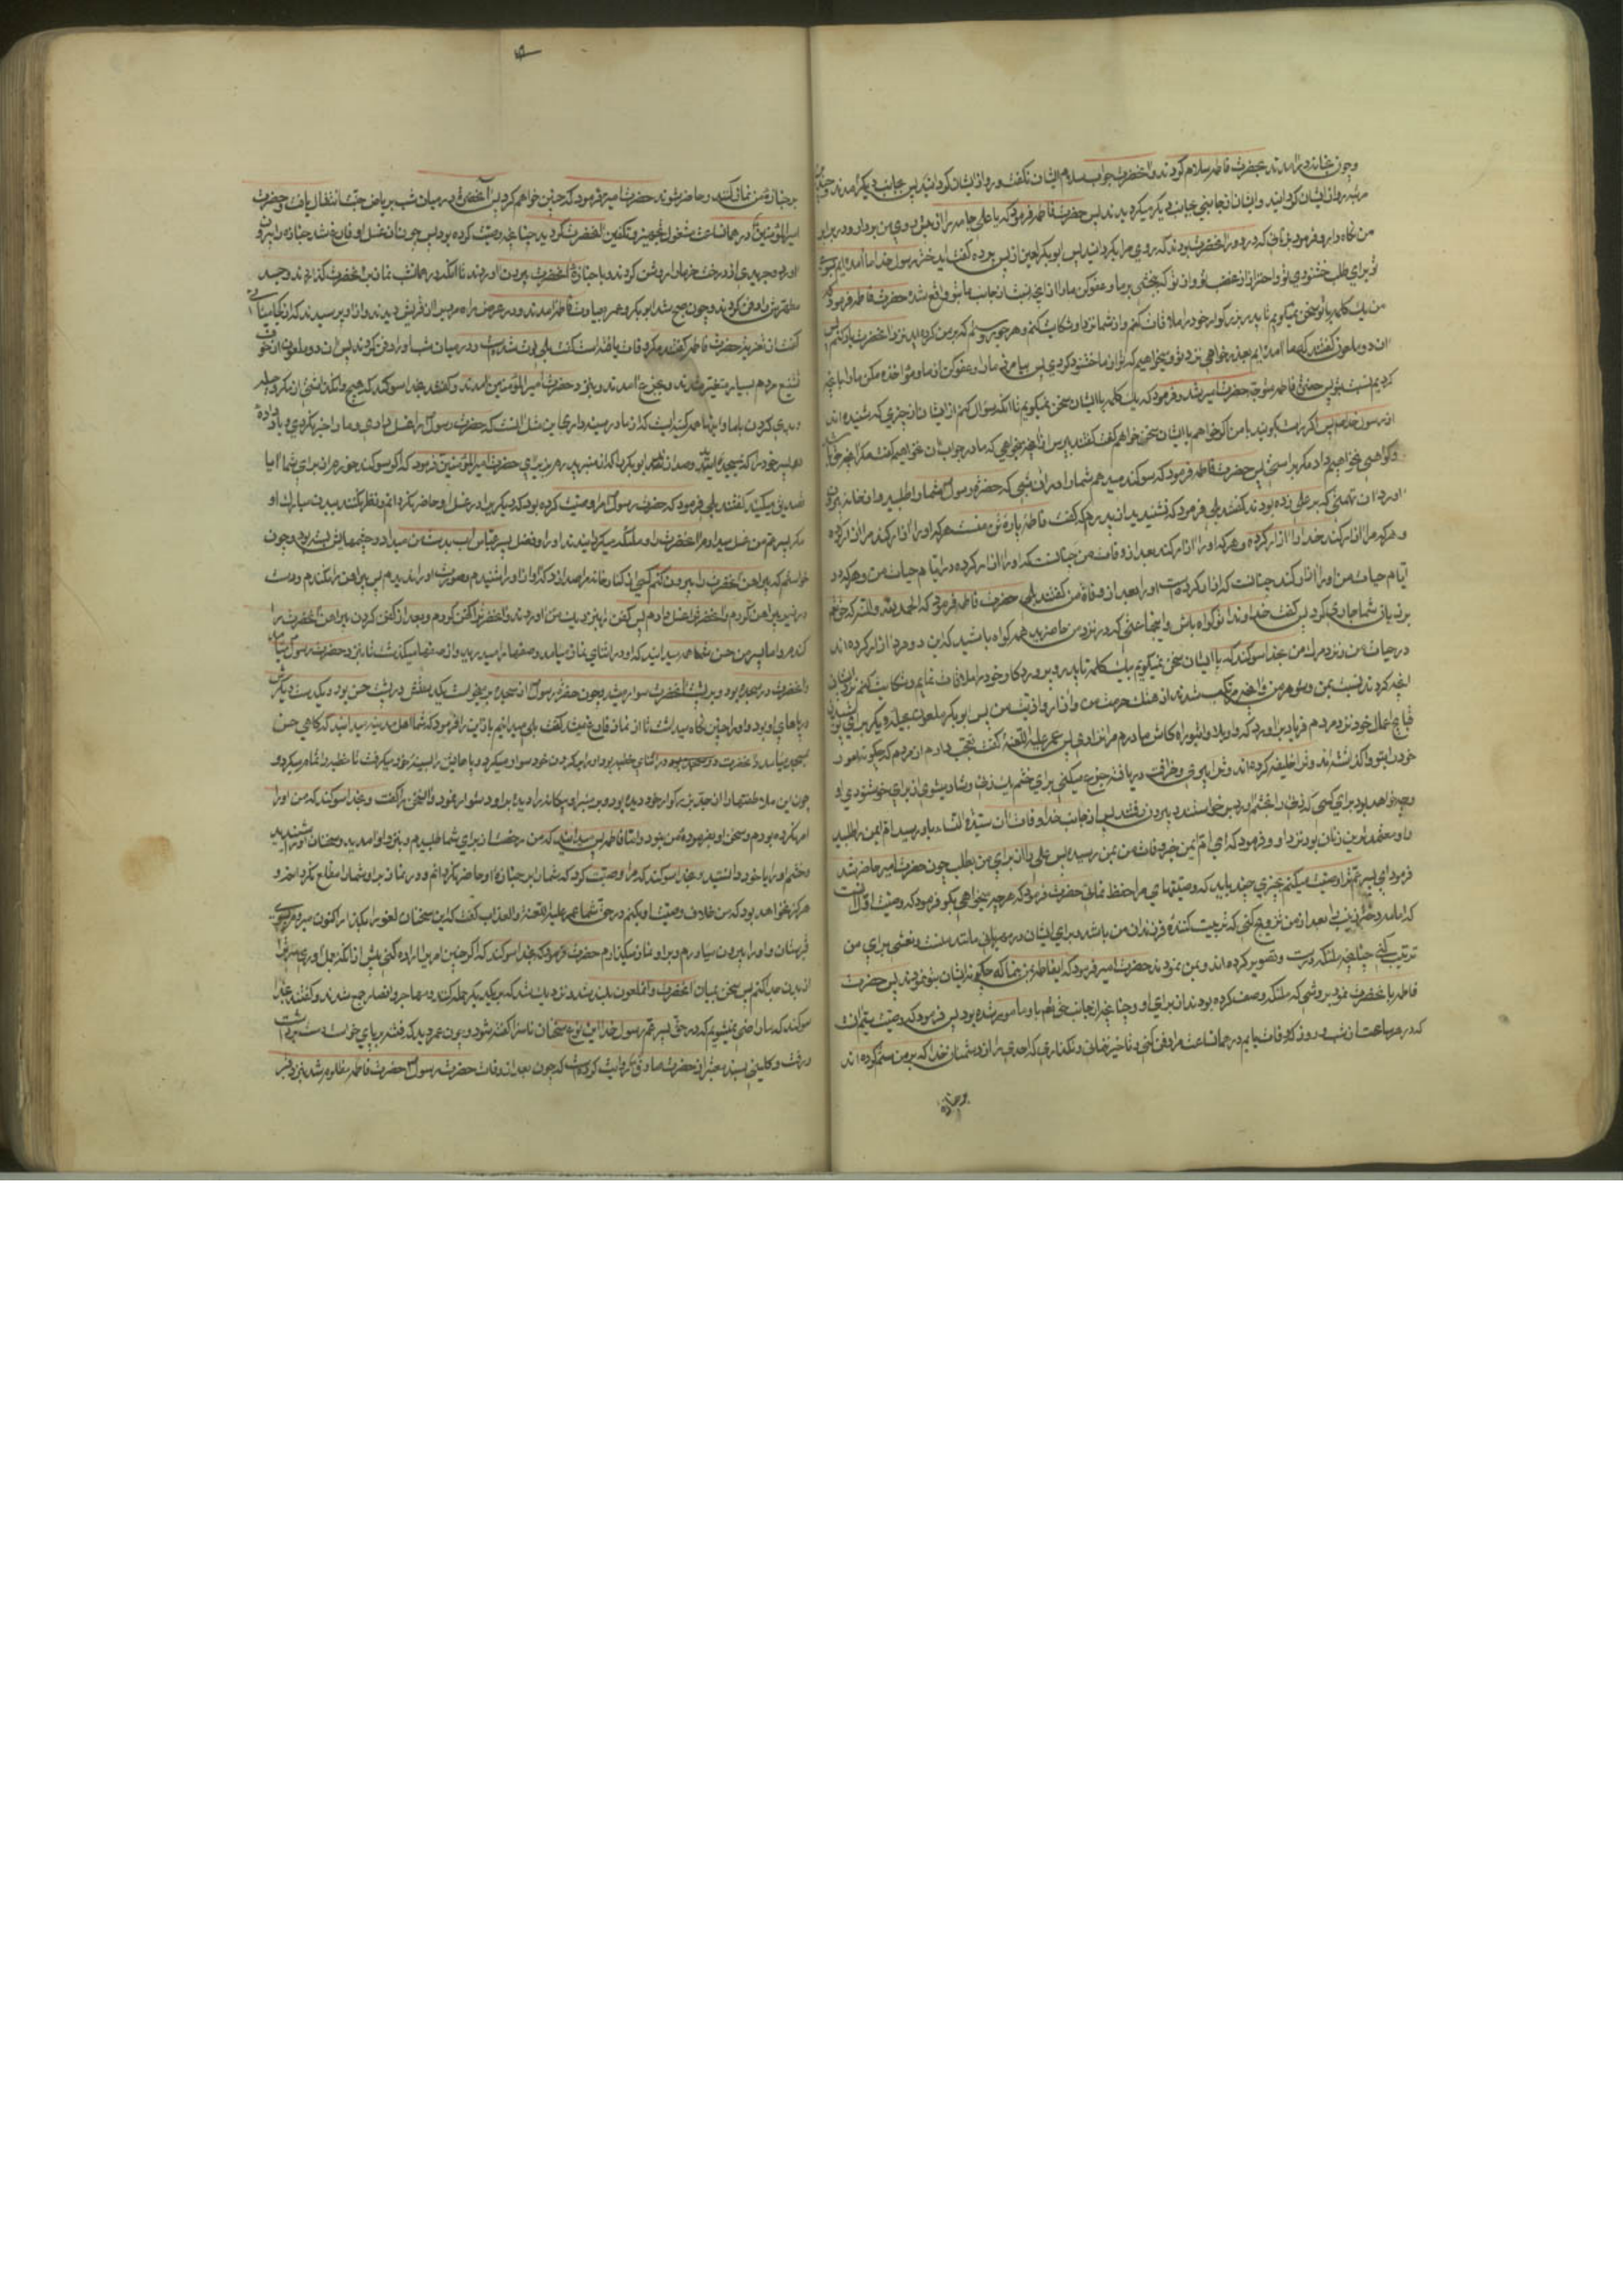 وچون بخانه درآمدند بحضرت فاطمه سلام کردند و آنحضرت جواب سلام ایشان نگفت و رو از ایشان گردانید پس بجانب دیگر آمدند و چند
مرتبه رو از ایشان گردانید و ایشان از جانبی بجانب دیگر میگردیدند پس حضرت فاطمه فرمود که یا علی جامه را از روی من
من نگاه دار و فرمود بزنانی که در دور آنحضرت بودند که روی مرا بگردانید پس ابوبکر لعین از پس پرده گفت ای دختر رسول خدا ما آمده‌ایم بسوی
تو برای طلب خشنودی تو و احتراز از غضب تو و از تو که ببخشی بر ما و عفو کن ما را از آنچه نسبت از جانب ما بتو واقع شده حضرت فاطمه فرمود که
من یک کلمه با تو سخن نمیگویم تا پدر بزرگوار خود را ملاقات کنم و از شما نزد او شکایت کنم و هر جور و ستم که بر من کرده‌اید نزد آنحضرت یاد کنم پس
آن دو ملعون گفتند که ما آمده‌ایم بعذرخواهی نزد تو و میخواهیم که تو را از ما خشنود کردی پس بیامرز ما را و عفو کن از ما و مؤاخذه مکن ما را بآنچه
کردیم نسبت بتو پس حضرت فاطمه متوجه حضرت امیر شد و فرمود که یک کلمه با ایشان سخن نمیگویم تا آنکه سؤال کنم از ایشان از چیزی که شنیده‌اند
از رسول خدا پس اگر راست بگویند با من اگر خواهم با ایشان سخن خواهم گفت گفتند بپرس از آنچه میخواهی که ما در جواب آن نخواهیم گفت مگر آنچه حق باشد
و گواهی نخواهیم داد مگر براستی پس حضرت فاطمه فرمود که سوگند میدهم شما را در آن شبی که حضرت رسول شما را طلبید و از خانه بیرون
آورد آن تهمتی که بر علی زده بودند گفتند بلی فرمود که نشنیدید از پدرم که گفت فاطمه پاره تن منست هر که او را آزار کند مرا آزار کرده
و هر که مرا آزار کند خدا را آزار کرده و هر که او را آزار کند بعد از وفات من چنانست که او را آزار کرده در ایام حیات من و هر که در
ایام حیات من او را آزار کند چنانست که آزار کرده است او را بعد از وفات من گفتند بلی حضرت فاطمه فرمود که الحمد لله والمنه که حق
بر زبان شما جاری کرد پس گفت خداوندا تو گواه باش و ای جماعتی که در نزد من حاضرید همه گواه باشید که این دو مرد آزار کرده‌اند
در حیات من و نزد مرگ من بخدا سوگند که با ایشان سخن نمیگویم یک کلمه تا پدر و پروردگار خود را ملاقات نمایم و شکایت کنم نزد ایشان
آنچه کردند نسبت بمن و شوهر من و آنچه مرتکب شدند از هتک حرمت من و آزار و اذیت من پس ابوبکر ملعون بحیله و مکر
قبایح اعمال خود نزد مردم فریاد برآورد که واویلاه و اثبوراه کاش مادرم مرا نزادی پس عمر علیه اللعنه گفت تعجب دارم از مردم که چگونه امور
خود را بتو واگذاشته‌اند و ترا خلیفه کرده‌اند و ترا پیری و خرافت دریافته جزع میکنی برای خشم یک زنی و شاد میشوی از برای خوشنودی او
و چه خواهد بود برای کسی که زنی را بخشم آورد پس برخواستند و بیرون رفتند پس از جانب خدا وفات آن سیده النساء باو رسید ام ایمن را طلبید
و او معتمدترین زنان بود نزد او و فرمود که ای ام ایمن خبر وفات من بمن رسید پس علی را از برای من بطلب چون حضرت امیر حاضر شد
فرمود ای پسر عم تو را وصیت میکنم بچیزی چند باید که وصیتهای مرا حفظ نمائی حضرت فرمود که هر چه میخواهی بگو فرمود که وصیت اول آنست
که امامه دختر زینب را بعد از من تزویج کنی که تربیت کننده فرزندان من باشد و برای ایشان در مهربانی مانند منست و نعشی برای من
ترتیب کنی چنانچه ملائکه صورت و تصویر کرده‌اند و بمن نمودند حضرت امیر فرمود که ای فاطمه بمن بنما که چگونه ایشان بتو نمودند پس حضرت
فاطمه با حضرت نمود بروشی که ملائکه وصف کرده بودند از برای او و چنانچه از جانب حق تعالی باو مأمور شده بود پس فرمود که وصیت سیم آنست
که در هر ساعت از شب و روز که وفات یابم در همان ساعت مرا دفن کنی و تأخیر ننمائی و نگذاری که احدی را از دشمنان خدا که بر من ستم کرده‌اند
بر جنازه
بر جنازه من نماز کنند و حاضر شوند حضرت امیر فرمود که چنین خواهم کرد پس آنحضرت در میان شب بریاض جنت انتقال یافت و حضرت
امیرالمؤمنین در همان ساعت مشغول تجهیز و تکفین آنحضرت گردید چنانچه وصیت کرده بود پس چون از غسل او فارغ شد جنازه را بیرون
آورد و جریدهای از درخت خرما را روشن کردند و با جنازه آنحضرت بیرون آوردند تا آنکه در همان شب نماز بر آنحضرت گذاردند و جسد
مطهرش را دفن کردند و چون صبح شد ابوبکر و عمر بعیادت فاطمه آمدند و در عرض راه مردی را از قریش دیدند و از او پرسیدند که از کجا میآئی
گفت از تعزیه حضرت فاطمه گفتند مگر وفات یافته است گفت بلی فوت شده است و در میان شب او را دفن کردند پس آن دو ملعون از خوف
تشنیع مردم بسیار متغیر شدند و بجزع آمدند و بنزد حضرت امیرالمؤمنین آمدند و گفتند بخدا سوگند که هیچ وانگذاشتی از مکر و حیله
و بدی کردن با ما و اینها همه کینه‌ایست که از ما در سینه داری این مثل آنست که حضرت رسول را غسل دادی و ما را خبر نکردی و یاد داده
پسر خود را که بمسجد آمد و صدا زد ابوبکر را که از منبر پدرم بزیر آی حضرت امیرالمؤمنین فرمود که اگر سوگند خورم از برای شما آیا
تصدیق میکنید گفتند بلی فرمود که حضرت رسول مرا وصیت کرده بود که دیگری را در غسل او حاضر نگردانم و نظر نکند ببدن مبارک او
مگر پسر عم من غسل میدادم آنحضرت را و ملائکه میگردانیدند او را و فضل پسر عباس آب بدست من میداد و چشمهایش بسته بود و چون
خواستم که پیراهن آنحضرت را بیرون کنم کسی از کنار خانه مرا صدا زد که آواز او را شنیدم و صورت او را ندیدم پس پیراهن را نکندم و دست
در زیر پیراهن کردم و آنحضرت را غسل دادم پس کفن را بنزدیک من آوردند و آنحضرت را کفن کردم و بعد از کفن کردن پیراهن آنحضرت را
کندم و اما پسر من حسن شما همه میدانید که او در اثنای نماز میآمد و صفها را میبرید و از صفها میگذشت تا بنزد حضرت رسول میآمد
و آنحضرت در سجده بود و بر پشت آنحضرت سوار میشد و چون حضرت رسول از سجده برمیخواست یک دستش در پشت حسن بود و یک دست دیگرش
در پاهای او بود و او را چنین نگاه میداشت تا از نماز فارغ میشد گفتند بلی میدانیم باز این را فرمود که شما اهل مدینه میدانید که گاهی حسن
بمسجد میآمد و آنحضرت در اثنای خطبه بود او را بر گردن خود سوار میکرد و پاهایش را بسینه خود میگرفت تا خطبه را تمام میکرد و
چون این ملاطفتها را از جد بزرگوار خود دیده بود و بر منبر او بیگانه را دید بر او دشوار نمود و آن سخن را گفت و بخدا سوگند که من او را
امر نکرده بودم و سخن او بفرموده من نبود و اما فاطمه پس میدانید که من رخصت از برای شما طلبیدم و بنزد او آمدید و سخنان او را شنیدید
و خشم او را با خود دانستید و بخدا سوگند که مرا وصیت کرد که شما را بر جنازه او حاضر نگردانم و در نماز بر او شما را مطلع نگردانم و
هرگز نخواهد بود که من خلاف وصیت او بکنم در حق شما عمر علیه اللعنه والعذاب گفت که این سخنان لغو را بگذار اکنون میروم بسوی
قبرستان و او را بیرون میآورم و بر او نماز میگذارم حضرت فرمود که بخدا سوگند که اگر چنین امری را اراده کنی پیش از آنکه بعمل آوری سرت را
از بدن جدا کنم پس سخن میان آنحضرت و آن ملعون بلند شد و نزدیک شد که بر یکدیگر حمله کنند و مهاجر و انصار جمع شدند و گفتند بخدا
سوگند که ما راضی نمیشویم که در حق پسر عم رسول خدا این نوع سخنان ناسزا گفته شود و چون عمر دید که فتنه برپای خواست دست برداشت
و رفت و کلینی بسند معتبر از حضرت صادق روایت کرده است که چون بعد از وفات حضرت رسول حضرت فاطمه مظلومه شد بنزد قبر